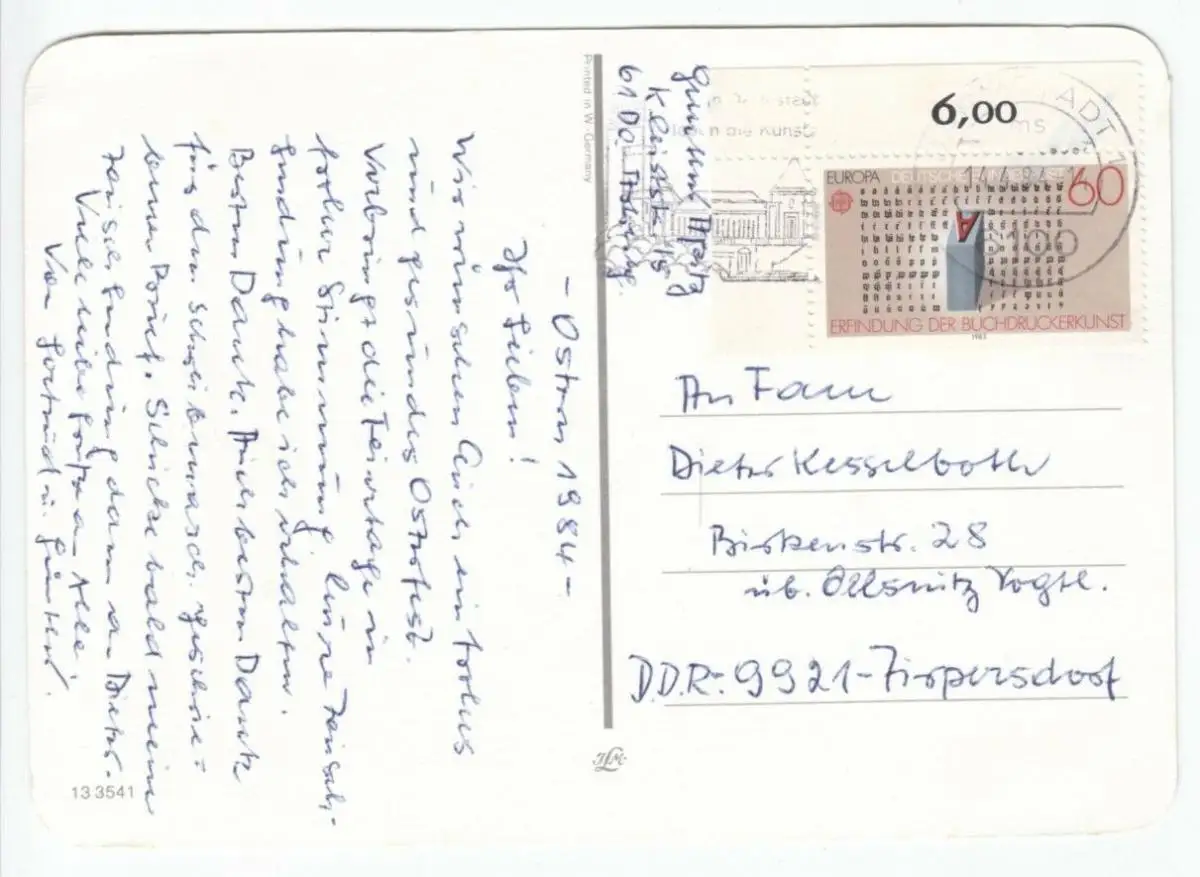 - Ostern 1984 -
Ihr Lieben!
Wir wünschen Euch ein frohes
und gesundes Osterfest.
Verbringt die Feiertage in
froher Stimmung! Eure Zeitsch.-
sendung habe ich erhalten.
Besten Dank. Auch besten Dank
für den Schreibmasch. geschrie-
benen Brief. Schicke bald meine
Zeitsch. Sendung dann an Dieter.
Viele liebe Grüße an Alle!
Von Gertrud u. Günther.
13 3541
Printed in W.-Germany
Günther
Kleiststr.
61 Da.
6,00
EUROPA DEUTSCHE BUNDESPOST 60
A
ERFINDUNG DER BUCHDRUCKERKUNST
1983
14.4.84
6100
An Fam
Dieter Kesselboth
Birkenstr. 28
üb. Oelsnitz Vogtl.
DDR-9921-Tirpersdorf